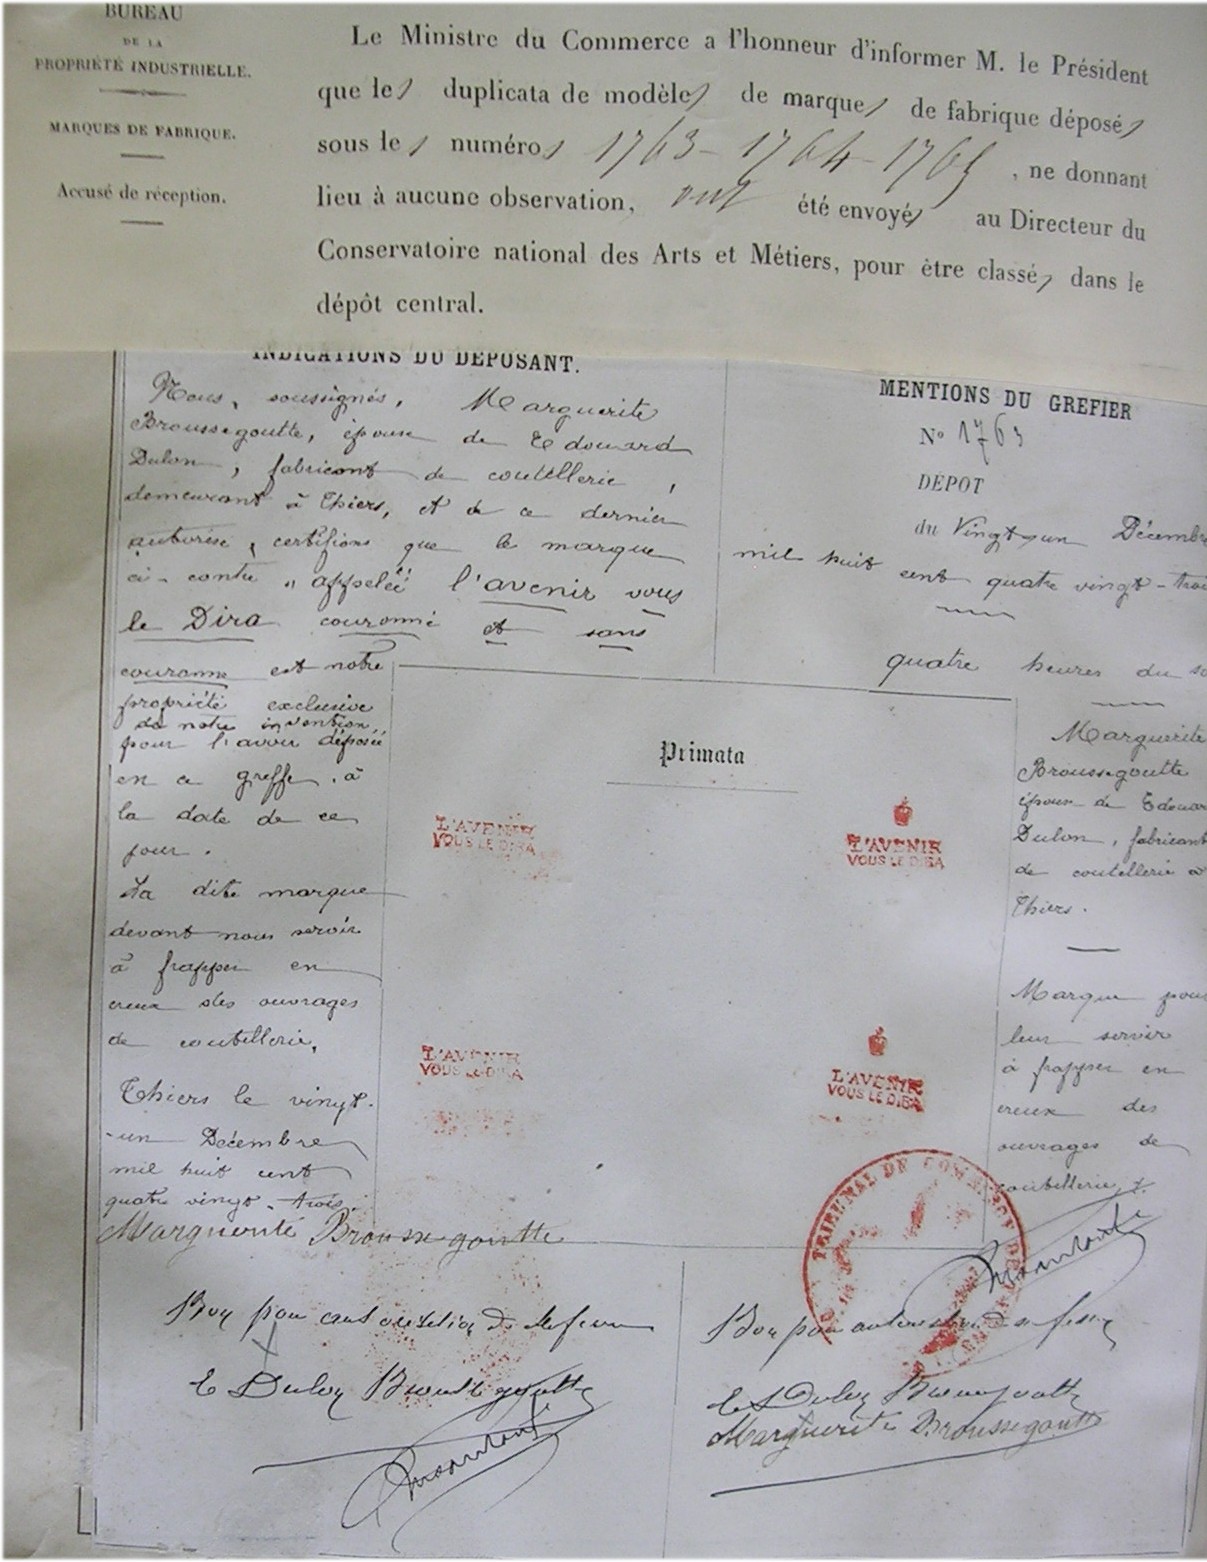 BUREAU
DE LA
PROPRIÉTÉ INDUSTRIELLE.
MARQUES DE FABRIQUE.
Accusé de réception.
Le Ministre du Commerce a l'honneur d'informer M. le Président
que les duplicata de modèles de marques de fabrique déposés
sous les numéros 1763 - 1764 - 1765, ne donnant
lieu à aucune observation, ont été envoyés au Directeur du
Conservatoire national des Arts et Métiers, pour être classés dans le
dépôt central.
INDICATIONS DU DÉPOSANT.
Nous, soussignés, Marguerite
Broussegoutte, épouse de Edouard
Dulon, fabricant de coutellerie,
demeurant à Thiers, et de ce dernier
autorisé, certifions que la marque
ci-contre "appelée" l'avenir vous
le Dira couronné et sans
couronne est notre
propriété exclusive
de notre invention
pour l'avoir déposée
en ce greffe, à
la date de ce
jour.
La dite marque
devant nous servir
à frapper en
creux des ouvrages
de coutellerie.
Thiers le vingt-
-un Décembre
mil huit cent
quatre vingt-trois.
Marguerite Broussegoutte
MENTIONS DU GREFIER
No 1763
DÉPOT
du Vingt un Décembre
mil huit cent quatre vingt-trois
quatre heures du
Marguerite
Broussegoutte
épouse de Edouar
Dulon, fabricant
de coutellerie à
Thiers.
Marque pour
leur servir
à frapper en
creux des
ouvrages de
coutellerie
Primata
L'AVENIR
VOUS LE DIRA
L'AVENIR
VOUS LE DIRA
L'AVENIR
VOUS LE DIRA
L'AVENIR
VOUS LE DIRA
TRIBUNAL DE COMMERCE DE
Bon pour autorisation de ma femme
E Dulon Broussegoutte
Bon pour autorisation de ma femme
E Dulon Broussegoutte
Marguerite Broussegoutte